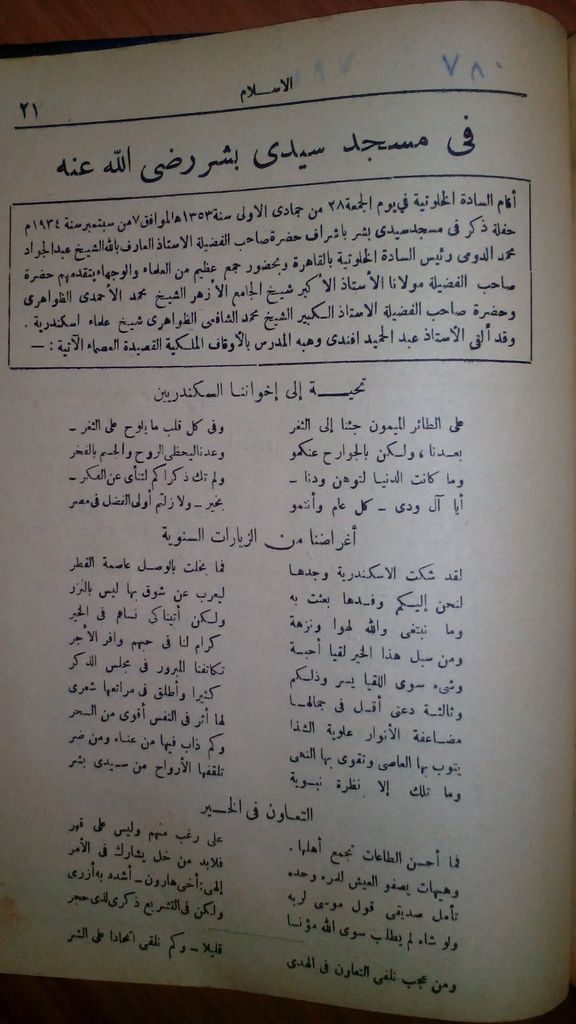 ٧٨٠
الاسلام
٢١
فى مسجد سيدى بشر رضى الله عنه
أقام السادة الخلوتية في يوم الجمعة ٢٨ من جمادى الاولى سنة ١٣٥٣ ه الموافق ٧ من سبتمبر سنة ١٩٣٤ م
حفلة ذكر فى مسجد سيدى بشر باشراف حضرة صاحب الفضيلة الاستاذ العارف بالله الشيخ عبد الجواد
محمد الدومى رئيس السادة الخلوتية بالقاهرة وبحضور جمع عظيم من العلماء والوجهاء يتقدمهم حضرة
صاحب الفضيلة مولانا الأستاذ الأكبر شيخ الجامع الأزهر الشيخ محمد الأحمدى الظواهرى
وحضرة صاحب الفضيلة الاستاذ الكبير الشيخ محمد الشافعى الظواهرى شيخ علماء اسكندرية .
وقد ألقى الأستاذ عبد الحميد افندى وهبه المدرس بالأوقاف الملكية القصيدة العصماء الآتية : —
تحيـــة إلى إخواننا السكندريين
على الطائر الميمون جئنا إلى الثغر وفى كل قلب ما يلوح على الثغر ـ
بعدنا ، ولكن بالجوارح عنكمو وعدنا ليحظى الروح والجسم بالفخر
وما كانت الدنيا لتوهن ودنا ـ ولم تك ذكراكم لتنأى عن الفكر ـ
أيا آل ودى ـ كل عام وأنتمو بخير ـ ولا زلتم أولى الفضل فى مصر
أغراضنا من الزيارات السنوية
لقد شكت الاسكندرية وجدها فما بخلت بالوصل عاصمة القطر
لنحن إليكم وفدها بعثت به ليعرب عن شوق بها ليس بالنزر
وما نبتغى والله لهوا ونزهة ولكن أتيناكى نساهم فى الخير
ومن سبل هذا الخير لقيا أحبة كرام لنا فى حبهم وافر الأجر
وشىء سوى اللقيا يسر وذلكم تكاتفنا المبرور فى مجلس الذكر
وثالثة دعنى أقل فى جمالها كثيرا وأطلق فى مراتعها شعرى
مضاعفة الأنوار علوية الشذا لها أثر فى النفس أقوى من السحر
يتوب بها العاصى وتقوى بها النهى وكم ذاب فيها من عناء ومن ضر
وما تلك إلا نظرة نبوية تلقفها الأرواح من سيدى بشر
التعاون فى الخــير
فما أحسن الطاعات تجمع أهلها . على رغب منهم وليس على قهر
وهيهات يصفو العيش للمرء وحده فلابد من خل يشارك فى الأمر
تأمل صديقى قول موسى لربه إلهى : أخى هارون ـ أشدد به أزرى
ولو شاء لم يطلب سوى الله مؤنسا ولكن فى التشريع ذكرى لذى حجر
ومن عجب نلفى التعاون فى الهدى قليلا ـ وكم نلقى اتحادا على الشر